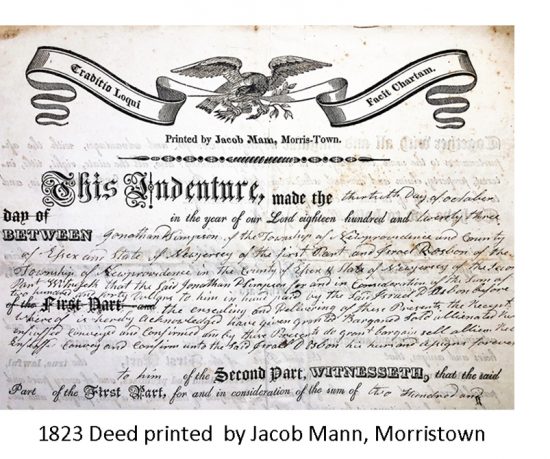 Traditio Loqui
Facit Chartam.
Printed by Jacob Mann, Morris-Town.
This Indenture, made the thirtieth Day of october
day of in the year of our Lord eighteen hundred and twenty three
BETWEEN Jonathan Simpson of the Township of Newprovidence and County
of Essex and State of Newjersey of the first Part and Israel Dosbon of the
Township of Newprovidence in the County of Essex & State of Newjersey of the Second
Part Witnesseth that the said Jonathan Simpson for and in Consideration of the Sum of
two hundred and to him in hand paid by the said Israel before
of the First Part and the ensealing and Delivering of these Presents the Receipt
whereof hereby acknowledged have given granted Bargained sold alienated
enfeoffed conveyed and Confirmed and by these Presents do grant bargain sell alien
Enfeoff Convey and Confirm unto the said Israel his heirs and assigns forever
to him of the Second Part, WITNESSETH, that the said
Part of the First Part, for and in consideration of the sum of two hundred and
1823 Deed printed by Jacob Mann, Morristown